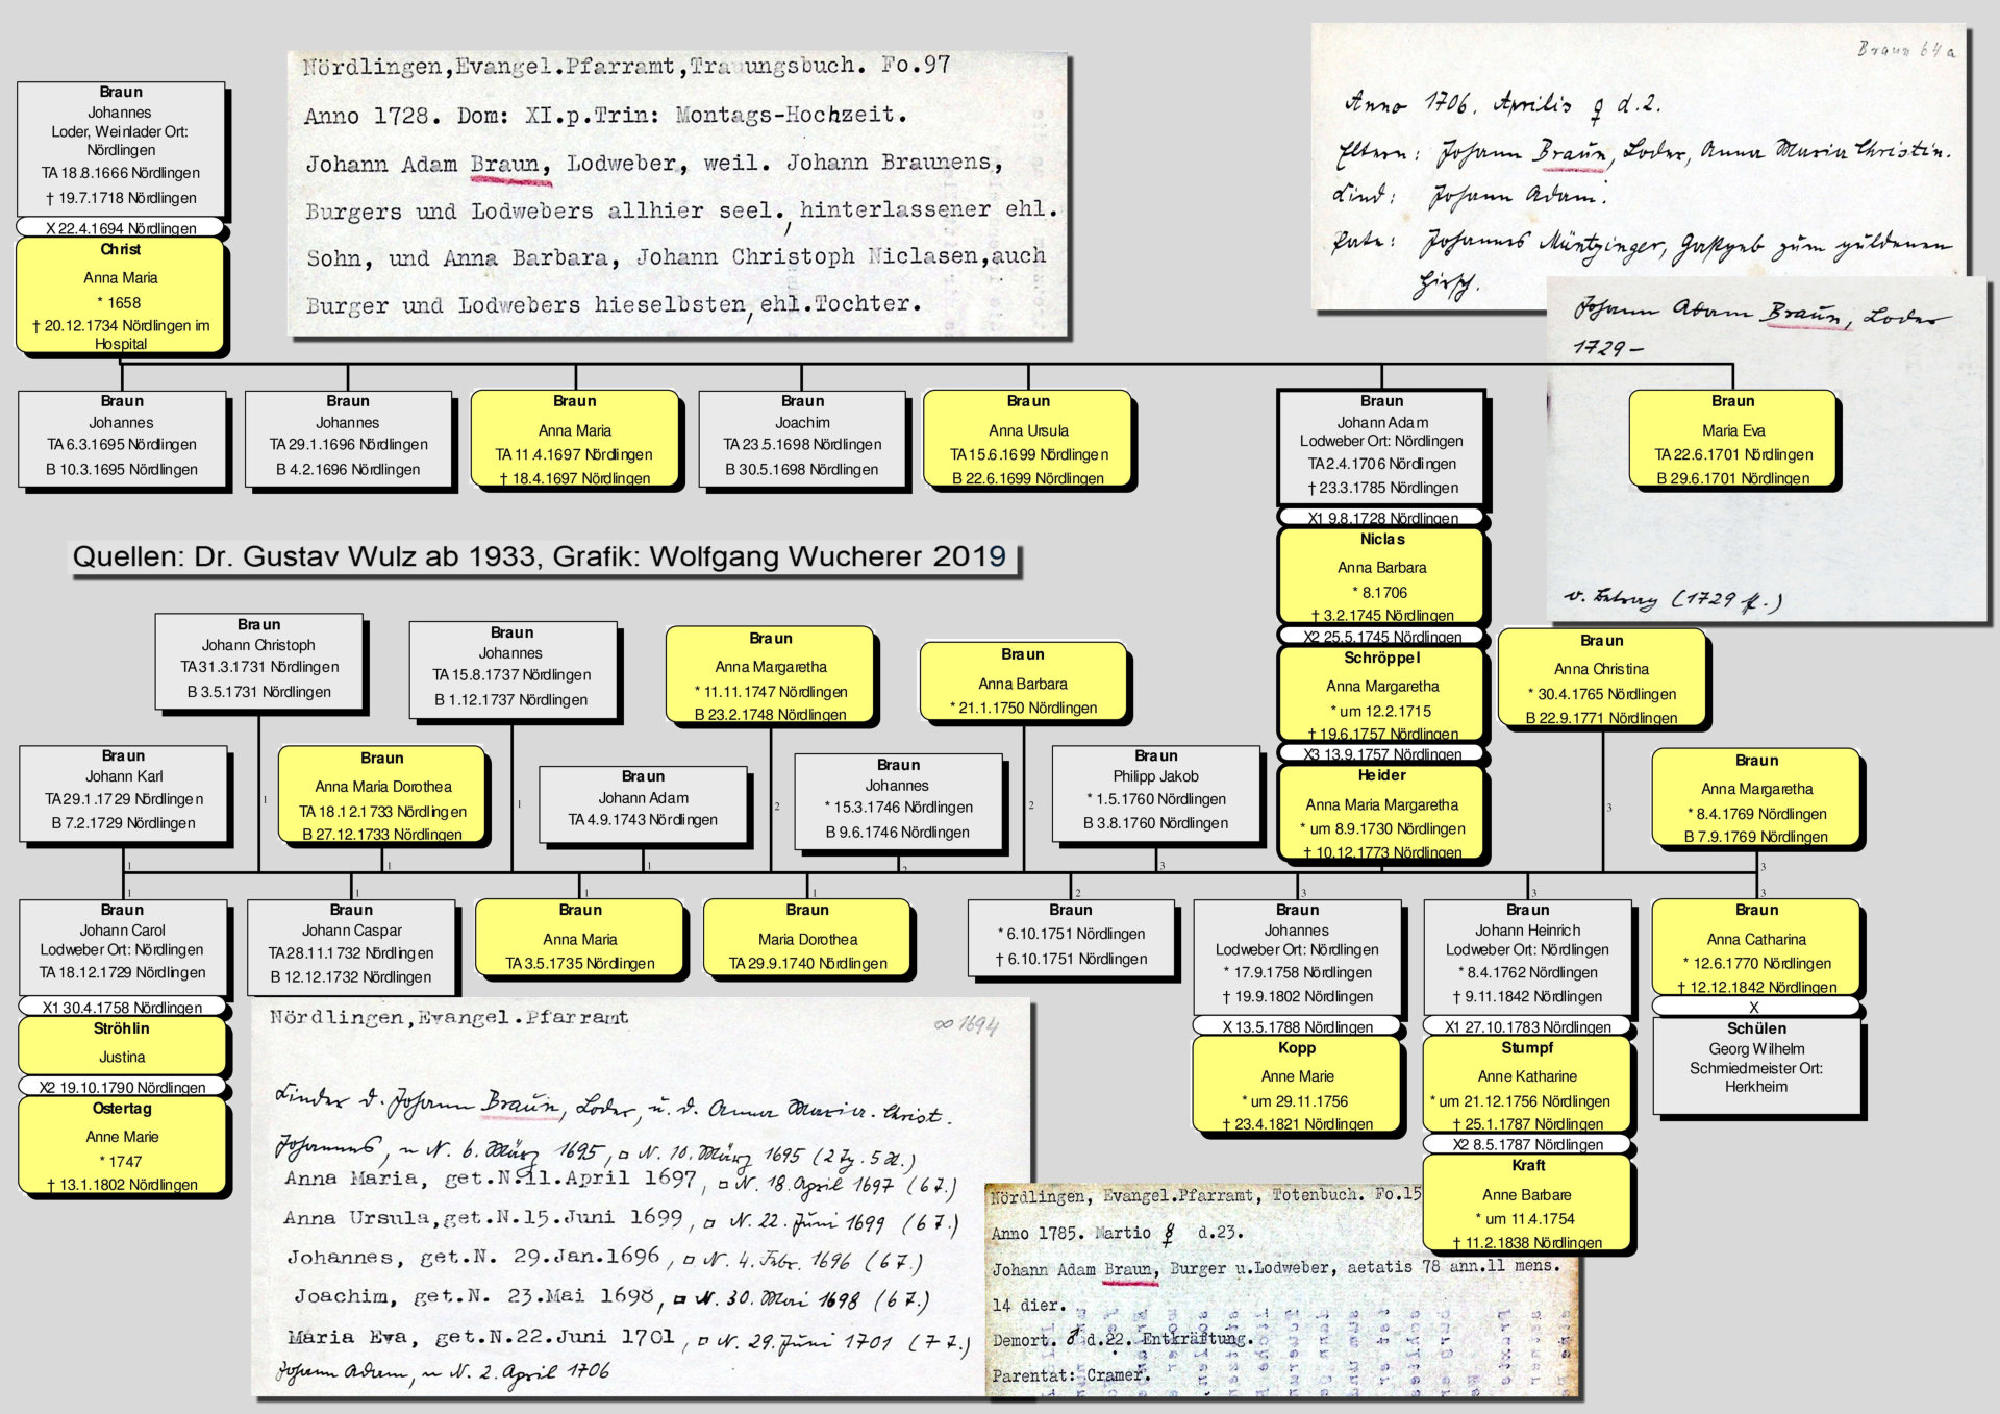 Nördlingen,Evangel.Pfarramt,Trauungsbuch. Fo.97
Anno 1728. Dom: XI.p.Trin: Montags-Hochzeit.
Johann Adam Braun, Lodweber, weil. Johann Braunens,
Burgers und Lodwebers allhier seel., hinterlassener ehl.
Sohn, und Anna Barbara, Johann Christoph Niclasen,auch
Burger und Lodwebers hieselbsten, ehl.Tochter.
Braun 64a
Anno 1706. Aprilis ♀ d.2.
Eltern: Johann Braun, Loder, Anna Maria Christin.
Kind: Johann Adam.
Pate: Johannes Müntzinger, Gastgeb zum güldenen
Hirsch.
Johann Adam Braun, Loder
1729–
(1729 ff.)
Braun
Johannes
Loder, Weinlader Ort:
Nördlingen
TA 18.8.1666 Nördlingen
† 19.7.1718 Nördlingen
X 22.4.1694 Nördlingen
Christ
Anna Maria
* 1658
† 20.12.1734 Nördlingen im
Hospital
Braun
Johannes
TA 6.3.1695 Nördlingen
B 10.3.1695 Nördlingen
Braun
Johannes
TA 29.1.1696 Nördlingen
B 4.2.1696 Nördlingen
Braun
Anna Maria
TA 11.4.1697 Nördlingen
† 18.4.1697 Nördlingen
Braun
Joachim
TA 23.5.1698 Nördlingen
B 30.5.1698 Nördlingen
Braun
Anna Ursula
TA 15.6.1699 Nördlingen
B 22.6.1699 Nördlingen
Braun
Johann Adam
Lodweber Ort: Nördlingen
TA 2.4.1706 Nördlingen
† 23.3.1785 Nördlingen
X1 9.8.1728 Nördlingen
Niclas
Anna Barbara
* 8.1706
† 3.2.1745 Nördlingen
X2 25.5.1745 Nördlingen
Schröppel
Anna Margaretha
* um 12.2.1715
† 19.6.1757 Nördlingen
X3 13.9.1757 Nördlingen
Heider
Anna Maria Margaretha
* um 8.9.1730 Nördlingen
† 10.12.1773 Nördlingen
Braun
Maria Eva
TA 22.6.1701 Nördlingen
B 29.6.1701 Nördlingen
Quellen: Dr. Gustav Wulz ab 1933, Grafik: Wolfgang Wucherer 2019
Braun
Johann Christoph
TA 31.3.1731 Nördlingen
B 3.5.1731 Nördlingen
1
Braun
Johannes
TA 15.8.1737 Nördlingen
B 1.12.1737 Nördlingen
1
Braun
Anna Margaretha
* 11.11.1747 Nördlingen
B 23.2.1748 Nördlingen
2
Braun
Anna Barbara
* 21.1.1750 Nördlingen
2
Braun
Anna Christina
* 30.4.1765 Nördlingen
B 22.9.1771 Nördlingen
3
Braun
Johann Karl
TA 29.1.1729 Nördlingen
B 7.2.1729 Nördlingen
1
Braun
Anna Maria Dorothea
TA 18.12.1733 Nördlingen
B 27.12.1733 Nördlingen
1
Braun
Johann Adam
TA 4.9.1743 Nördlingen
1
Braun
Johannes
* 15.3.1746 Nördlingen
B 9.6.1746 Nördlingen
2
Braun
Philipp Jakob
* 1.5.1760 Nördlingen
B 3.8.1760 Nördlingen
3
Braun
Anna Margaretha
* 8.4.1769 Nördlingen
B 7.9.1769 Nördlingen
3
1
Braun
Johann Carol
Lodweber Ort: Nördlingen
TA 18.12.1729 Nördlingen
X1 30.4.1758 Nördlingen
Ströhlin
Justina
X2 19.10.1790 Nördlingen
Ostertag
Anne Marie
* 1747
† 13.1.1802 Nördlingen
1
Braun
Johann Caspar
TA 28.11.1732 Nördlingen
B 12.12.1732 Nördlingen
1
Braun
Anna Maria
TA 3.5.1735 Nördlingen
1
Braun
Maria Dorothea
TA 29.9.1740 Nördlingen
2
Braun
* 6.10.1751 Nördlingen
† 6.10.1751 Nördlingen
3
Braun
Johannes
Lodweber Ort: Nördlingen
* 17.9.1758 Nördlingen
† 19.9.1802 Nördlingen
X 13.5.1788 Nördlingen
Kopp
Anne Marie
* um 29.11.1756
† 23.4.1821 Nördlingen
3
Braun
Johann Heinrich
Lodweber Ort: Nördlingen
* 8.4.1762 Nördlingen
† 9.11.1842 Nördlingen
X1 27.10.1783 Nördlingen
Stumpf
Anne Katharine
* um 21.12.1756 Nördlingen
† 25.1.1787 Nördlingen
X2 8.5.1787 Nördlingen
Kraft
Anne Barbare
* um 11.4.1754
† 11.2.1838 Nördlingen
3
Braun
Anna Catharina
* 12.6.1770 Nördlingen
† 12.12.1842 Nördlingen
X
Schülen
Georg Wilhelm
Schmiedmeister Ort:
Herkheim
Nördlingen,Evangel.Pfarramt
∞ 1694
Kinder d. Johann Braun, Loder, u. d. Anna Maria Christ.
Johannes, ~ N. 6. März 1695, □ N. 10. März 1695 (2 Tg. 5 St.)
Anna Maria, get.N.11.April 1697, □ N. 18. April 1697 (6 T.)
Anna Ursula,get.N.15.Juni 1699, □ N. 22. Juni 1699 (6 T.)
Johannes, get.N. 29.Jan.1696, □ N. 4. Febr. 1696 (6 T.)
Joachim, get.N. 23.Mai 1698, □ N. 30. Mai 1698 (6 T.)
Maria Eva, get.N.22.Juni 1701, □ N. 29. Juni 1701 (7 T.)
Johann Adam, ~ N. 2. April 1706
Nördlingen, Evangel.Pfarramt, Totenbuch. Fo.15
Anno 1785. Martio ☿ d.23.
Johann Adam Braun, Burger u.Lodweber, aetatis 78 ann.11 mens.
14 dier.
Demort. ♂ d.22. Entkräftung.
Parentat: Cramer.